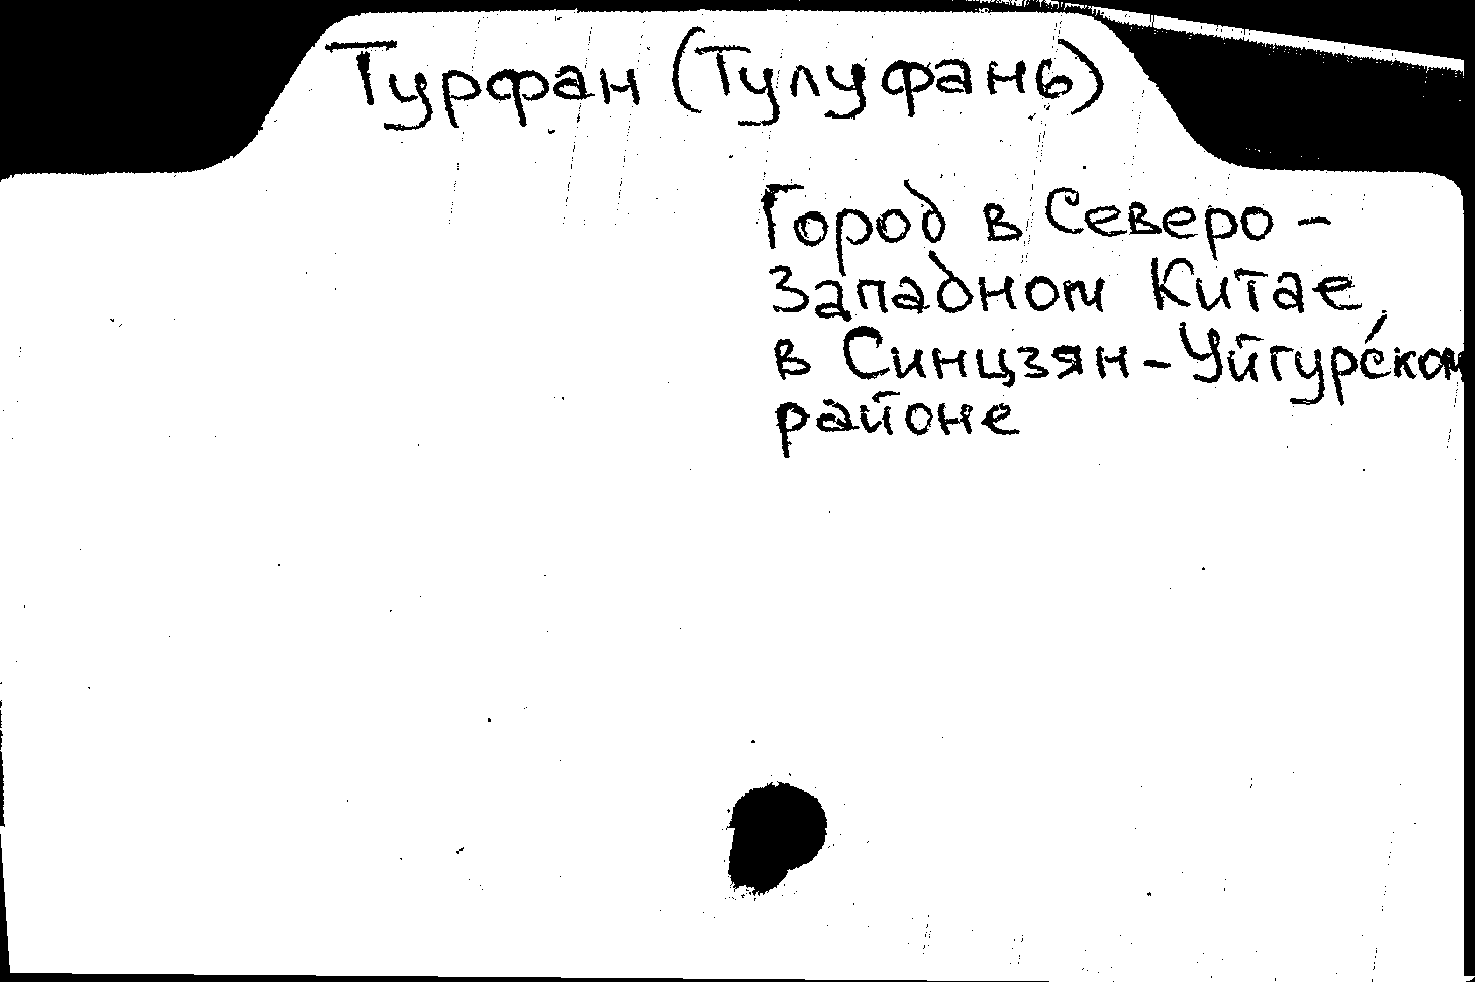 Турфан (Тулуфань)
Город в Северо-
Западном Китае,
в Синцзян-Уйгурском
районе